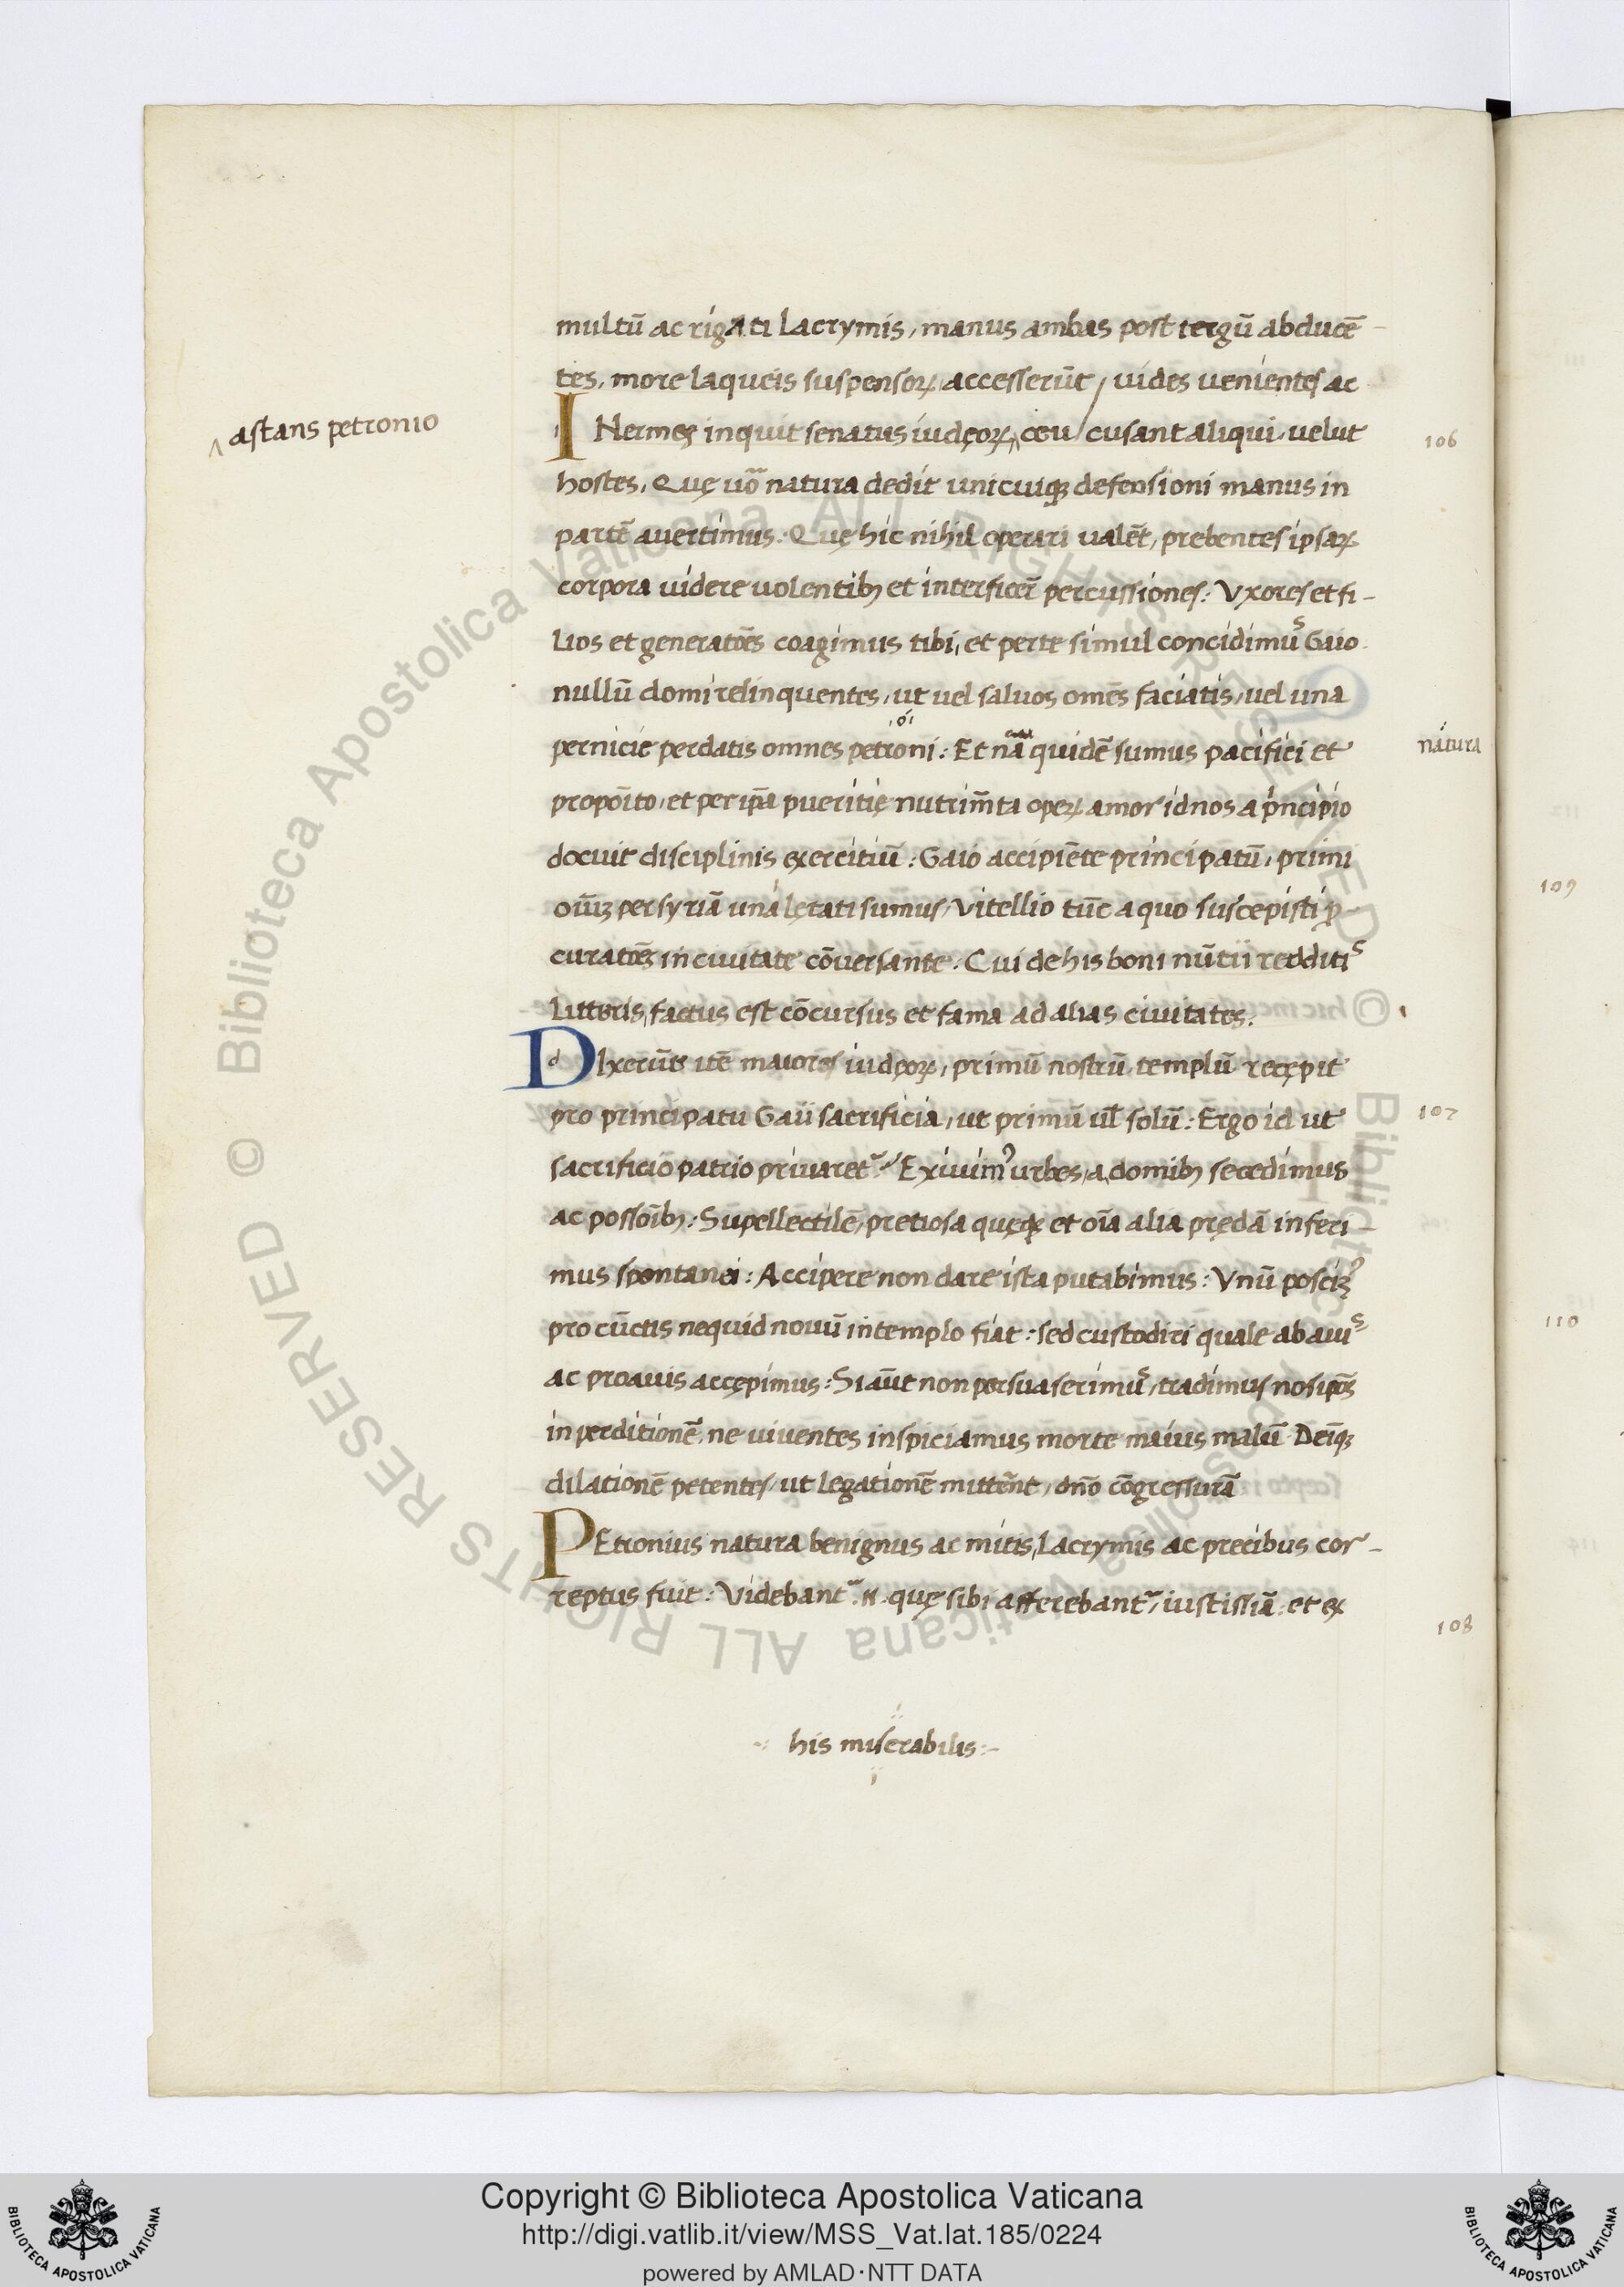 multū ac rigati lacrymis, manus ambas post tergū abducē-
tes, more laqueis suspensoꝝ, accesserūt / uides uenientes ac
INermes inquit senatus iudęoꝝ, ceu / cusant aliqui uelut
‸ astans petronio
106
hostes, Quę uo᷑ natura dedit unicuiqꝫ defensioni manus in
partē auertimus: Quę hic nihil operari ualēt, prebentes ipsaꝝ
corpora uidere uolentibꝫ et interficer̄ percussiones: Vxores et fi-
lios et generatōes coagimus tibi, et per te simul concidimus Gaio
nullū domi relinquentes, ut uel saluos omēs faciatis, uel una
pernicie perdatis omnes petroni: Et nā quidē sumus pacifici et
natura
propoīto, et per ip̄a pueritię nutrim̄ta opeꝝ amor id nos a p̍ncipio
docuit disciplinis exercitiū: Gaio accipiēte principatū, primi
oīuꝫ per syriā una lętati sumus, Vitellio tūc a quo suscepisti ꝓ-
curatōeꝫ in ciuitate cōuersante: Cui de his boni nūtii redditis
litteris, factus est cōcursus et fama ad alias ciuitates:
DIxerūt itē maiores iudęoꝝ, primū nostrū templū recępit
pro principatu Gaii sacrificia, ut primū ul̄ solū: Ergo id ut
107
sacrificio patrio priuaret᷑: Exiuimꝰ urbes, a domibꝫ secedimus
ac possoībꝫ: Supellectilē, pretiosa quęqꝫ et oīa alia prędā inferi-
mus spontanei: Accipere non dare ista putabimus: Vnū poscimꝰ
pro cūctis nequid nouū in templo fiat: sed custodiri quale ab auis
ac proauis accępimus: Si aūt non persuaserimus, tradimus nosip̄os
in perditionē, ne uiuentes inspiciamus morte maius malū Deīqꝫ
dilationē petentes, ut legationē mittēnt, dn̄o cōgressurā
PEtronius natura benignus ac mitis, lacrymis ac precibus cor-
reptus fuit: Videbant᷑ .n. quę sibi afferebant᷑, iustissīa: et ex
108
his miserabilis:-
109
110
Copyright © Biblioteca Apostolica Vaticana
http://digi.vatlib.it/view/MSS_Vat.lat.185/0224
powered by AMLAD·NTT DATA
BIBLIOTECA APOSTOLICA VATICANA
BIBLIOTECA APOSTOLICA VATICANA
© Biblioteca Apostolica Vaticana ALL RIGHTS RESERVED © Biblioteca Apostolica Vaticana ALL RIGHTS RESERVED